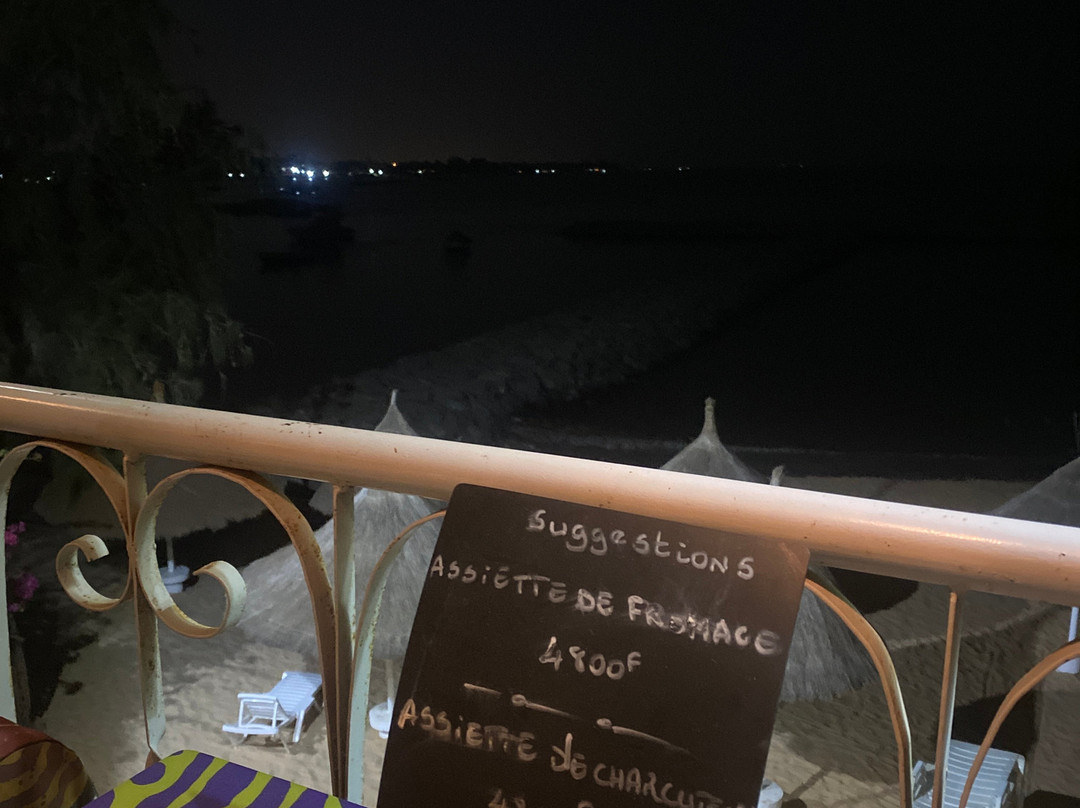 Suggestions
ASSIETTE DE FROMAGE
4800F
ASSIETTE de